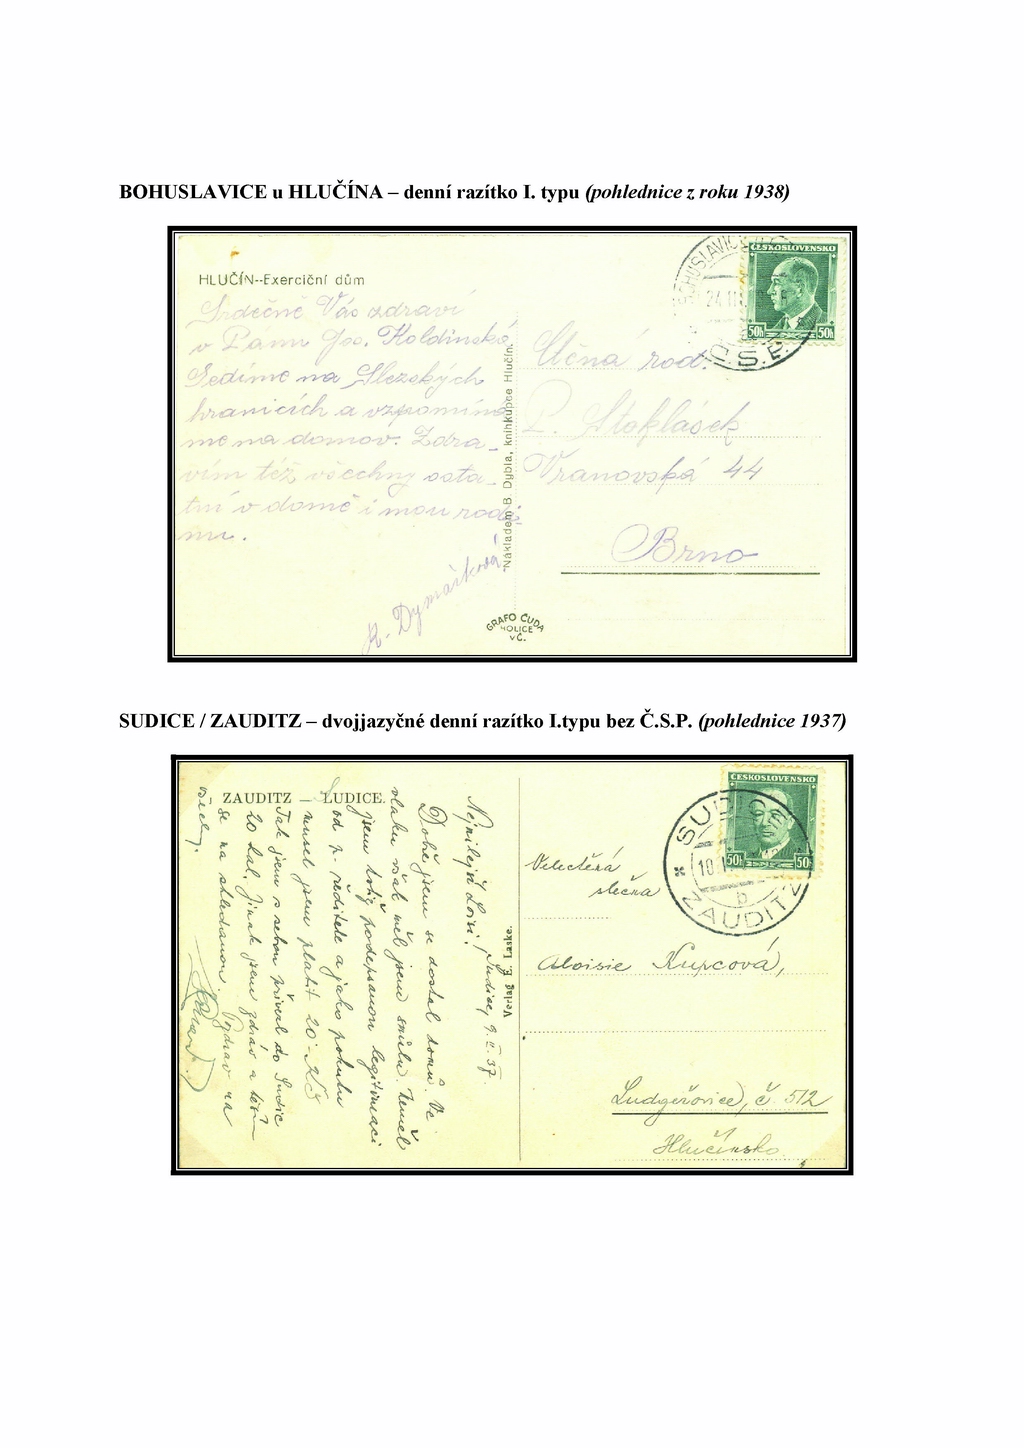 BOHUSLAVICE u HLUČÍNA – denní razítko I. typu (pohlednice z roku 1938)
HLUČÍN--Exerciční dům
Srdečně Vás zdraví
v Pánu Jos. Holdinská
Sedíme na Slezských
hranicích a vzpomíná
me na domov. Zdra_
vím též všechny osta_
tní v domě i mou rodi
nu.
Nakladem B. Dybla, knihkupce Hlučín.
GRAFO ČUDA
HOLICE
V Č.
ČESKOSLOVENSKO
50h 50h
24 II
Č.S.P.
Ctěná rod.
P. Stoklásek
Vranovská 44
Brno
SUDICE / ZAUDITZ – dvojjazyčné denní razítko I.typu bez Č.S.P. (pohlednice 1937)
ZAUDITZ — SUDICE.
Nejmilejší Loisi! Sudice, 9. II. 37.
Dobře jsem se dostal domů. Ve
vlaku však měl jsem smůlu. Neměl
jsem totiž podepsanou legitimaci
od p. ředitele a jako pokutu
musel jsem platit 20·- Kč
Tak jsem s sebou přivezl do Sudic
20 hal. Jinak jsem zdráv a těším
se na shledanou. Pozdrav na
Verlag E. Laske.
ČESKOSLOVENSKO
50h 50h
SUDICE
10
b
ZAUDITZ
Velectěná
slečna
Aloisie Kupcová,
Ludgeřovice, č. 512
Hlučínsko